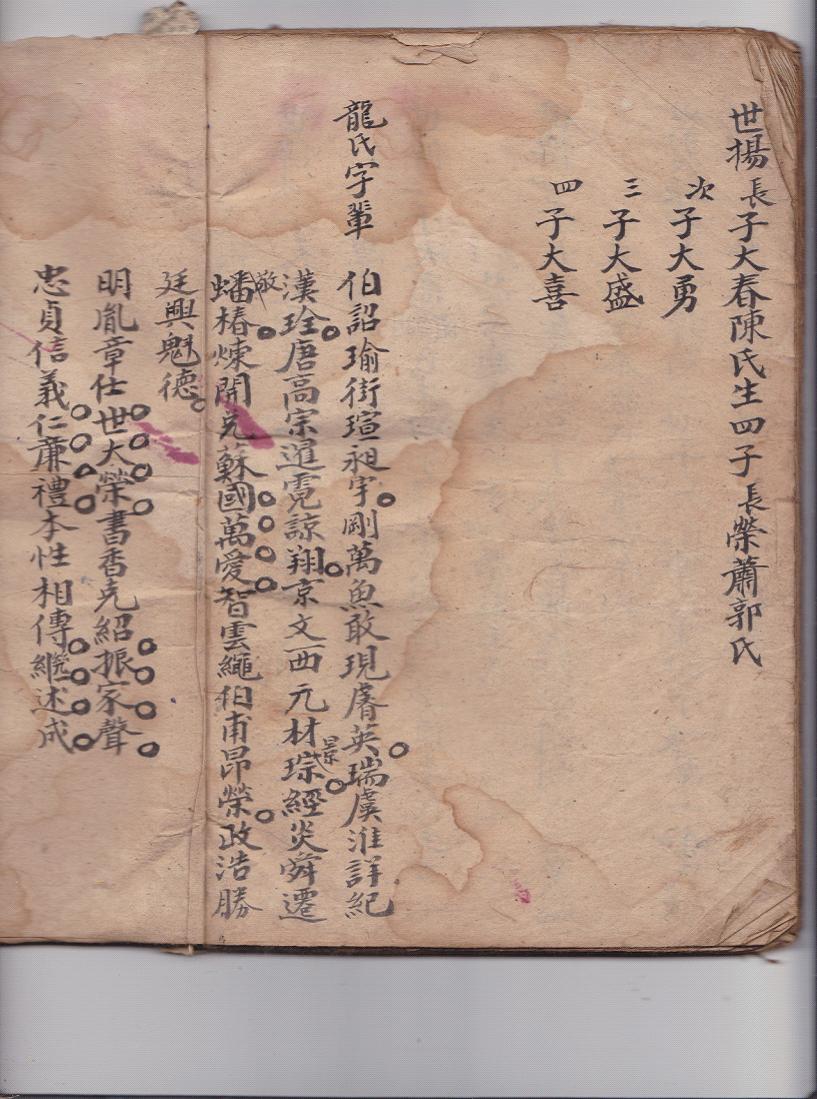 世揚 長子大春陳氏生四子 長榮蕭郭氏
次子大勇
三子大盛
四子大喜
龍氏字輩 伯詔瑜街瑄昶宇剛萬魚敢現睿英瑞虞淮詳紀
漢玲唐高宗暹霓諒翔京文西元材琮景經炎舜遷
蟠敬椿煉開克蘇國萬愛智雲繩伯甫昂榮政浩勝
廷興魁德
明胤章仕世大榮書香克紹振家聲
忠貞信義仁廉禮本性相傳繼述成